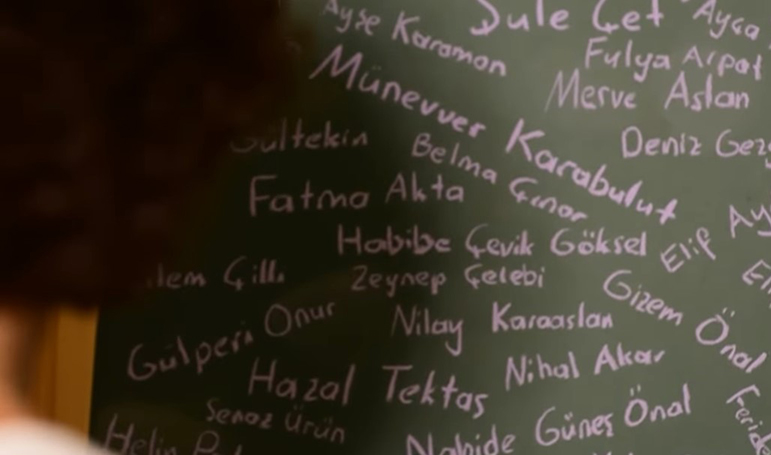 Ayşe Karaman
Şule Çet
Ayça
Fulya Arpat
Münevver Karabulut
Merve Aslan
Gültekin
Belma Çınar
Deniz
Fatma Akta
Habibe Çevik Göksel
Elif
Zeynep Çelebi
Gizem Önal
Gülperi Onur
Nilay Karaaslan
Hazal Tektaş
Nihal Akar
Senaz Ürün
Nahide Güneş Önal
Feride
Helin